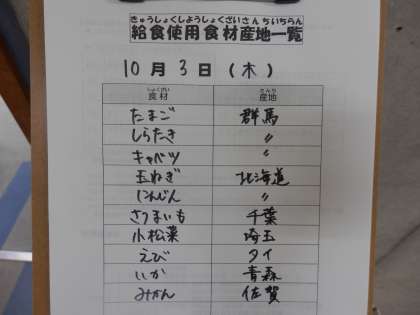 きゅうしょくしようしょくざいさんちいちらん
給食使用食材産地一覧
10月3日(木)
しょくざい さんち
食材 産地
たまご 群馬
しらたき 〃
キャベツ 〃
玉ねぎ 北海道
にんじん 〃
さつまいも 千葉
小松菜 埼玉
えび タイ
いか 青森
みかん 佐賀